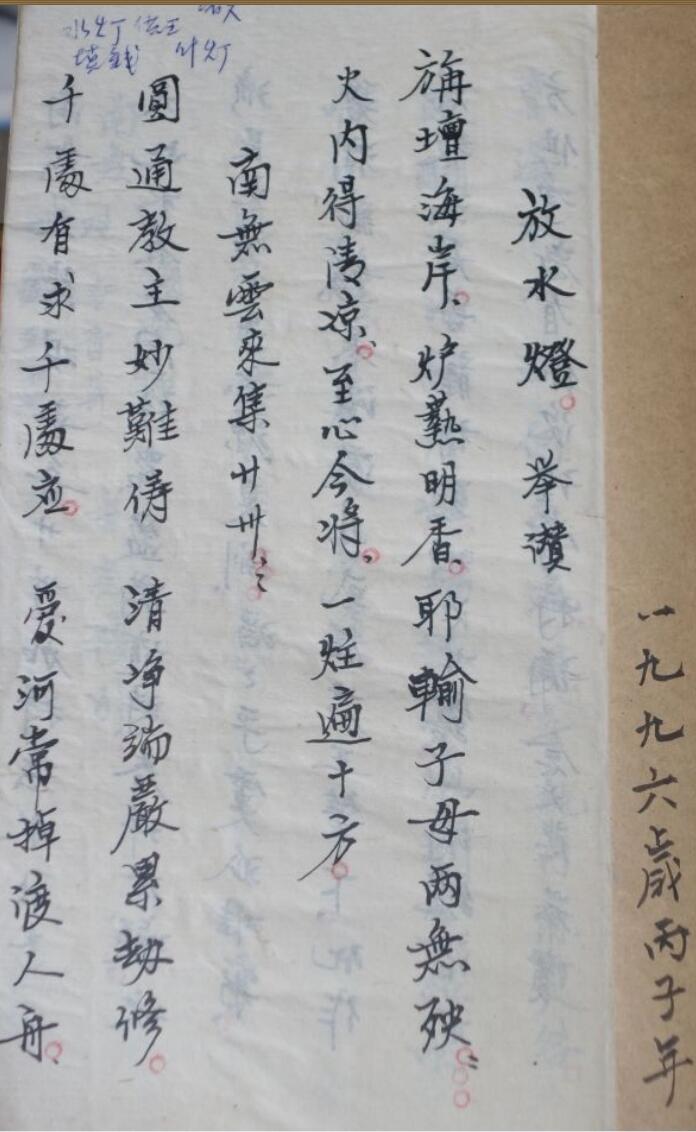 一九九六歲丙子年
放水燈。举讃
旃壇海岸、炉爇明香。耶輸子母两無殃。
火内得清凉、至心今将。一炷遍十方。
南無雲來集廿卅
圓通教主妙難俦 清净端嚴累劫修。
千處有求千處应。愛河常掉渡人舟。
水灯 供王
填盏 叶灯